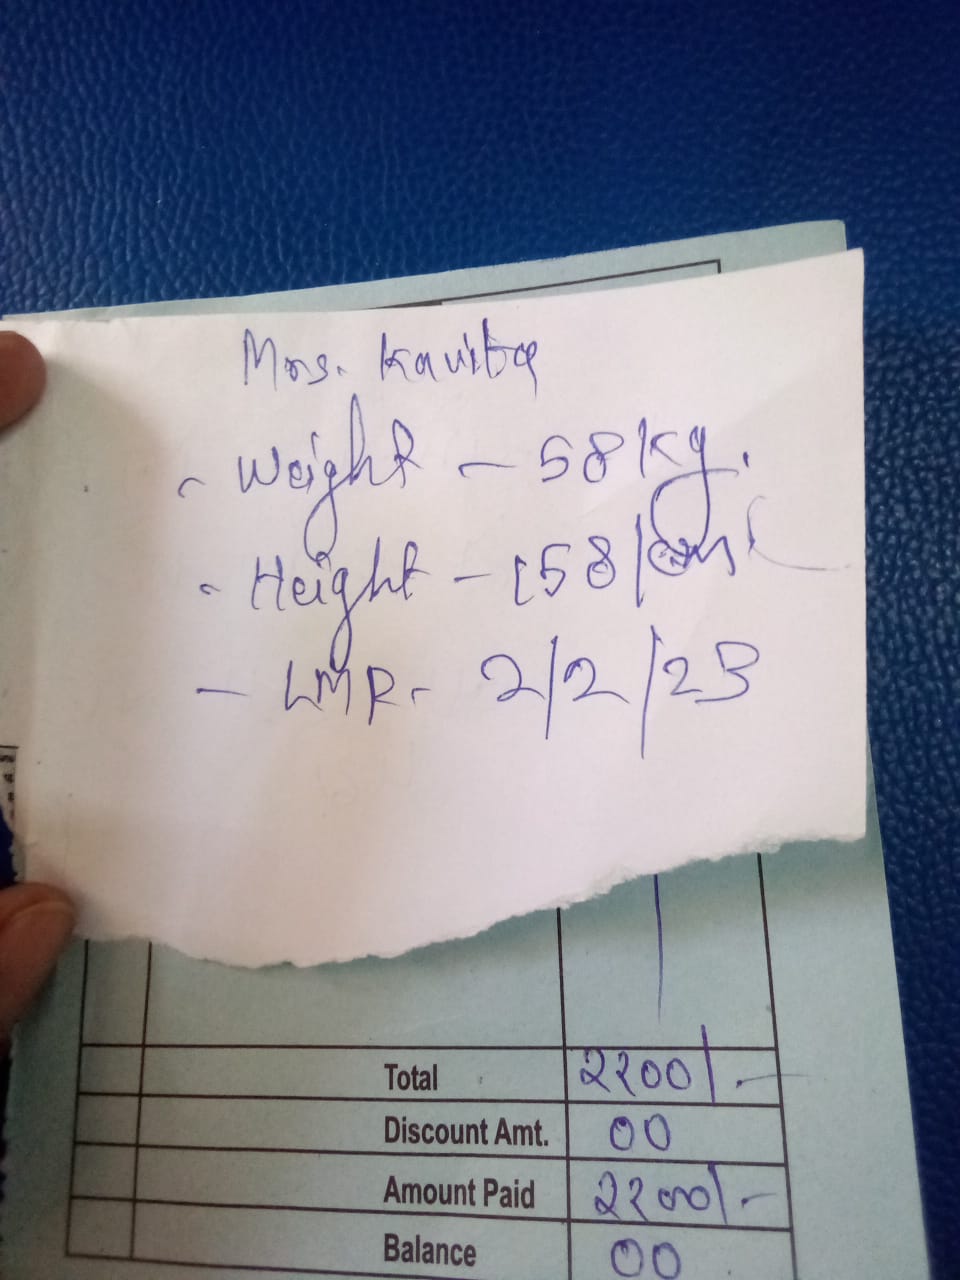 Mrs. Kavita
- Weight - 58 kg.
- Height - 158/cm
- LMP - 2/2/23
Total 2200/-
Discount Amt. 00
Amount Paid 2200/-
Balance 00